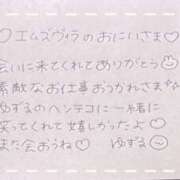 ♡エムズヴィラのおにいさま♡
会いに来てくれてありがとう
素敵なお仕事おつかれさまな
ゆずるのヘンテコに一緒に
笑ってくれて嬉しかったよ
また会おうね♡ ゆずる